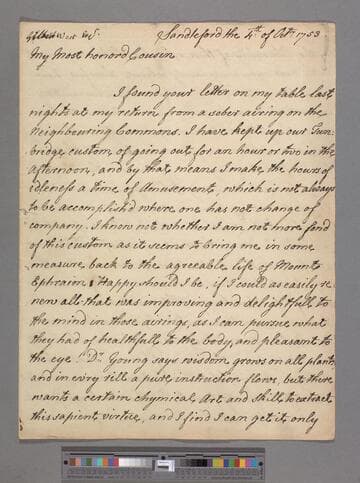 Gilbert West Esqr.
Sandleford the 4th of Octr 1753
My Most honord Cousin
I found your letter on my table last
nights at my return from a sober airing on the
Neighbouring Commons. I have kept up our Tun-
bridge custom of going out for an hour or two in the
afternoon, and by that means I make the hours of
idleness a time of Amusement, which is not always
to be accomplish'd where one has not change of
company. I know not whether I am not more fond
of this custom as it seems to bring me in some
measure back to the agreeable life of Mount
Ephraim. Happy should I be, if I could as easily re
new all that was improving and delightfull to
the mind in those airings, as I can pursue what
they had of healthfull to the body, and pleasant to
the eye. Dr. Young says wisdom grows on all plants
and in evry rill a pure instruction flows, but there
wants a certain chymical Art and skill to extract
this sapient virtue, and I find I can get it only